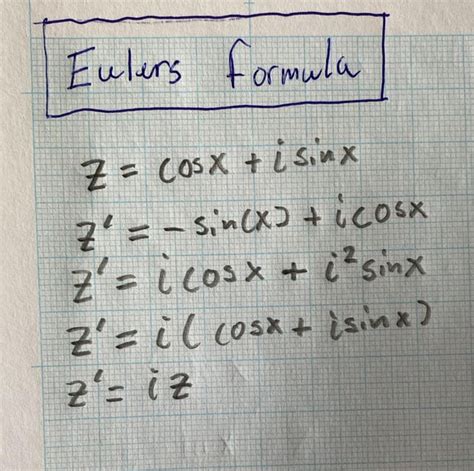 Eulers formula
z = cosx + i sinx
z' = - sin(x) + i cosx
z' = i cosx + i² sinx
z' = i ( cosx + i sinx )
z' = i z